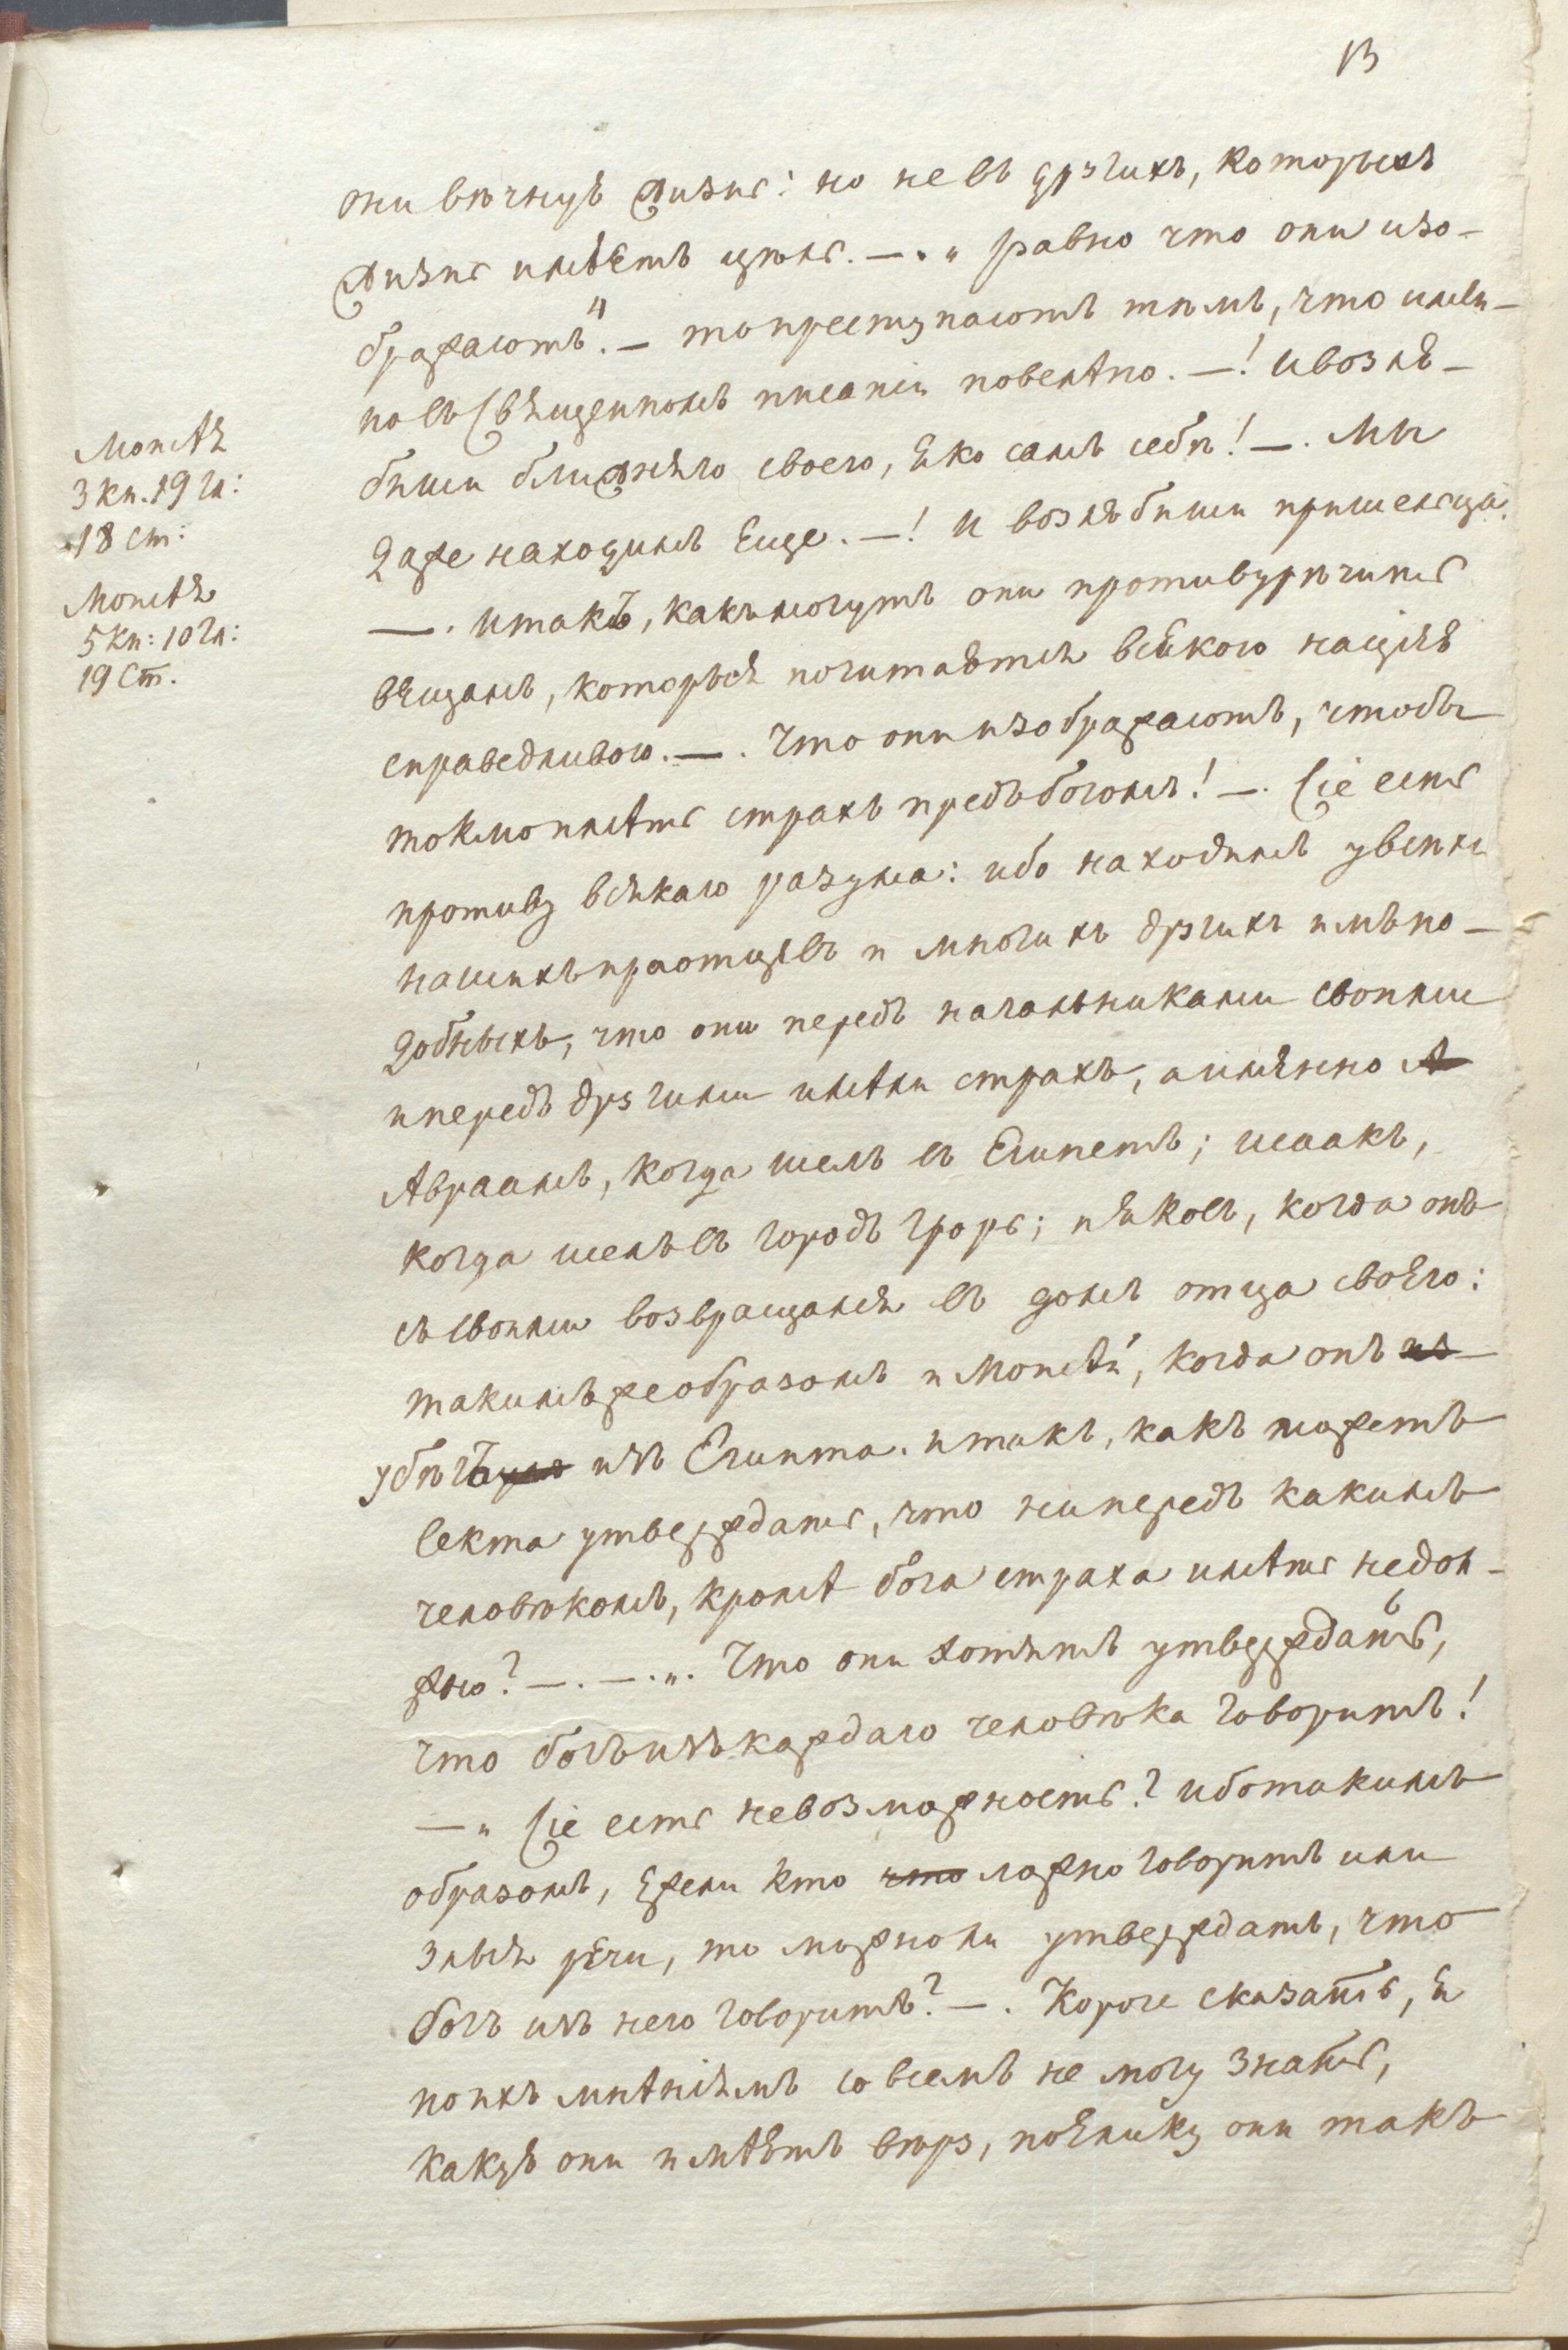 13
они вѣчную жизнь: но не въ другихъ, которыхъ
жизнь имѣетъ цѣль. —. „ равно что они изо-
бражаютъ". — то преступаютъ тѣмъ, что имян-
но въ Священномъ писаніи повелѣно. —! и возлю-
биши ближняго своего, яко самъ себѣ! —. Мы
даже находимъ еще. —! и возлюбиши пришельца.
—. итакъ, какъ могутъ они противурѣчить
вещамъ, которыя почитаются всякою нацією
справедливою. —. Что они изображаютъ, чтобы
токмо имѣть страхъ предъ богомъ! —. Сіе есть
противу всякаго разума: ибо находимъ у всѣхъ
нашихъ праотцевъ и многихъ другихъ имъ по-
добныхъ, что они передъ начальниками своими
и передъ другими имѣли страхъ, а имянно А
Авраамъ, когда шелъ въ Египетъ; исаакъ,
когда шелъ въ городъ Граръ; и яковъ, когда онъ
съ своими возвращался въ домъ отца своего:
такимъ же образомъ и Моисѣй, когда онъ
убѣгъ изъ Египта. итакъ, какъ можетъ
секта утверждать, что ни передъ какимъ
человѣкомъ, кромѣ бога страха имѣть не дол-
жно? —. —. „. Что они хотятъ утверждать,
что богъ изъ каждаго человѣка говоритъ!
— „ Сіе есть невозможность? ибо такимъ
образомъ, ежели кто что ложно говоритъ или
злыя рѣчи, то можно ли утверждать, что
богъ изъ него говоритъ? —. Короче сказать, я
по ихъ мнѣніямъ совсемъ не могу знать,
какую они имѣютъ вѣру, поелику они такъ
Моисея
3 кн. 19 гл:
18 ст:
Моисея
5 кн: 10 гл:
19 ст.